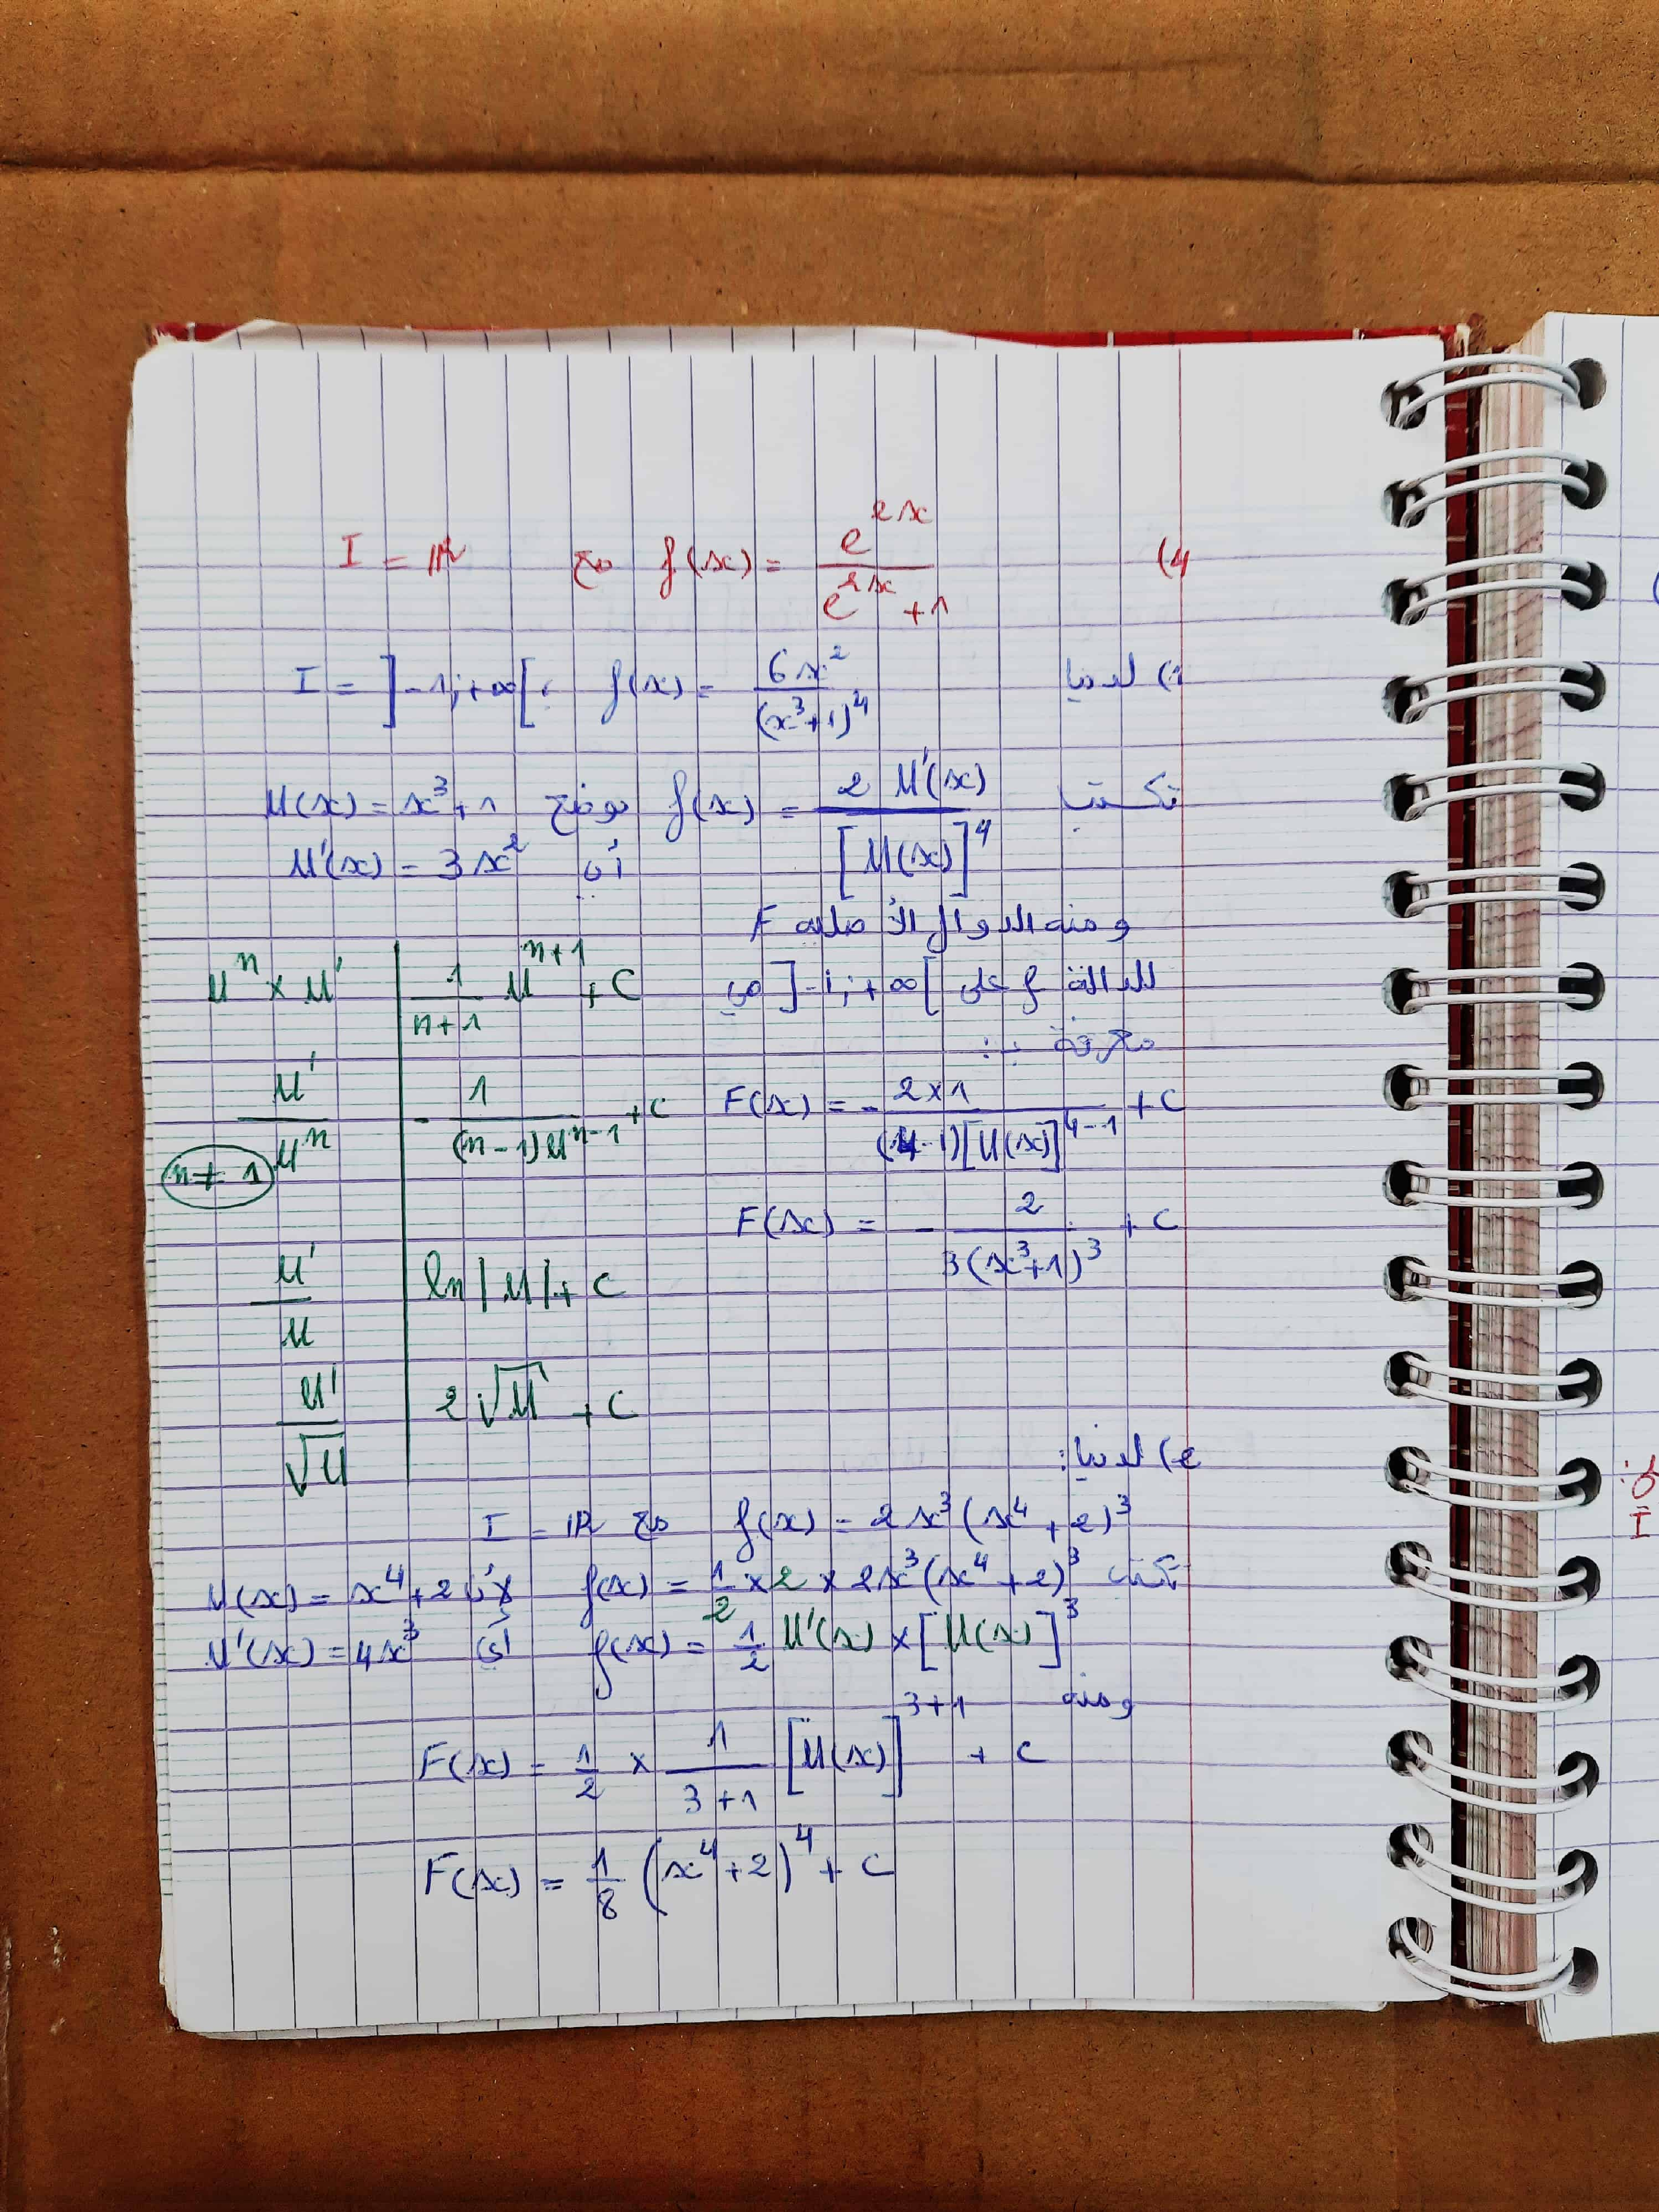 4) f(x) = e^{2x} / (e^{2x} + 1) مع I = ℝ
1) لدينا f(x) = 6x² / (x³+1)⁴ ، I = ]-1; +∞[
تكتب f(x) = 2 U'(x) / [U(x)]⁴ بوضع U(x) = x³ + 1
أي U'(x) = 3x²
ومنه الدوال الأصلية F
للدالة f على ]-1; +∞[ هي
معرفة بـ:
F(x) = - (2×1) / ((4-1)[U(x)]^{4-1}) + C
F(x) = - 2 / (3(x³+1)³) + C
Uⁿ × U' | 1/(n+1) U^{n+1} + C
U'/Uⁿ | - 1/((n-1)U^{n-1}) + C
n ≠ 1
U'/U | ln|U| + C
U'/√U | 2√U + C
2) لدينا:
f(x) = 2x³(x⁴ + 2)³ مع I = ℝ
تكتب f(x) = 1/2 × 2 × 2x³(x⁴ + 2)³ لأن U(x) = x⁴ + 2
f(x) = 1/2 U'(x) × [U(x)]³ أي U'(x) = 4x³
ومنه
F(x) = 1/2 × 1/(3+1) [U(x)]^{3+1} + C
F(x) = 1/8 (x⁴ + 2)⁴ + C
I